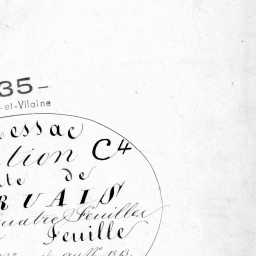 35-
-et-Vilaine
essac
tion C4
te de
RVAIS
quatre Feuilles
Feuille